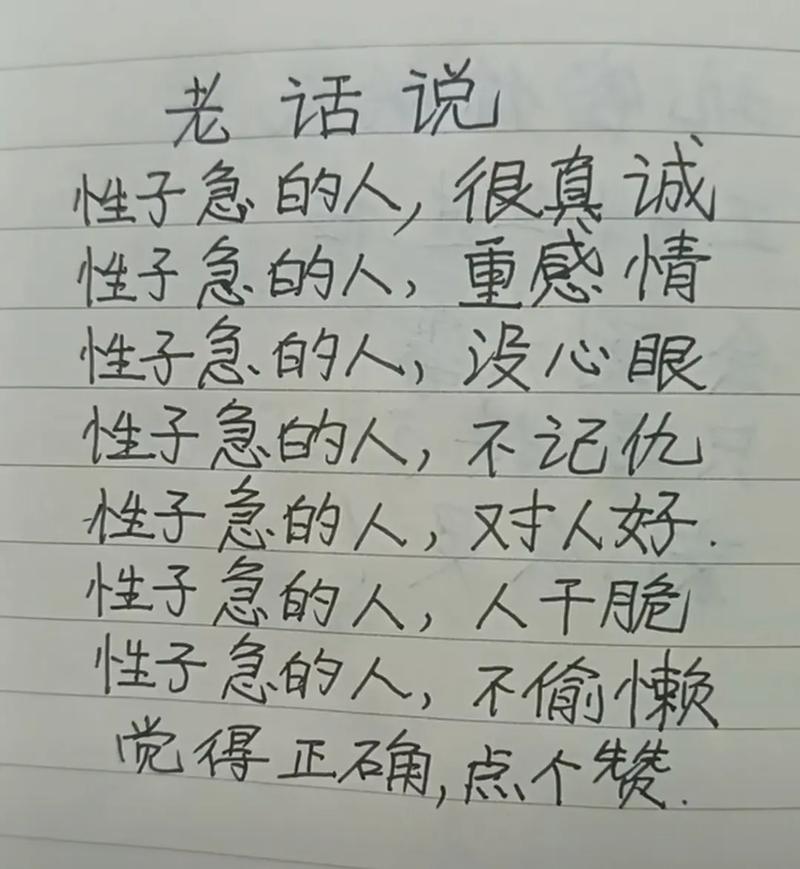 老话说
性子急的人,很真诚
性子急的人,重感情
性子急的人,没心眼
性子急的人,不记仇
性子急的人,对人好.
性子急的人,人干脆
性子急的人,不偷懒
觉得正确,点个赞.